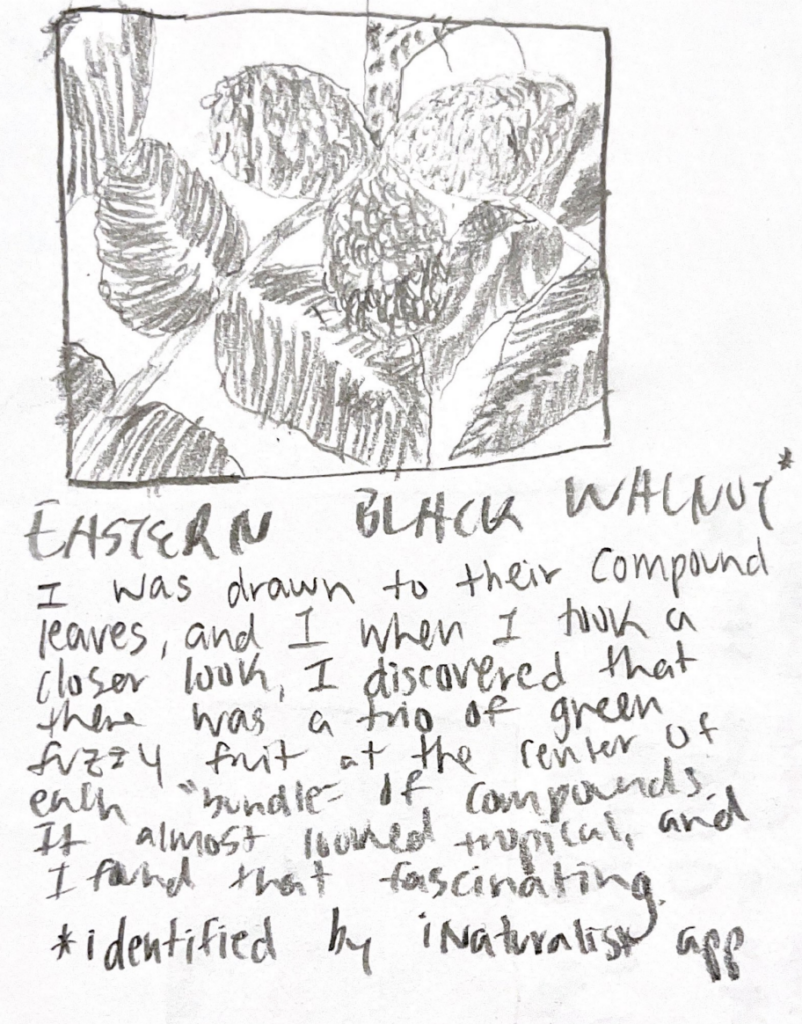 EASTERN BLACK WALNUT*
I was drawn to their compound
leaves, and I when I took a
closer look, I discovered that
there was a trio of green
fuzzy fruit at the center of
each "bundle" of compounds.
It almost looked tropical, and
I found that fascinating.
*identified by iNaturalist app